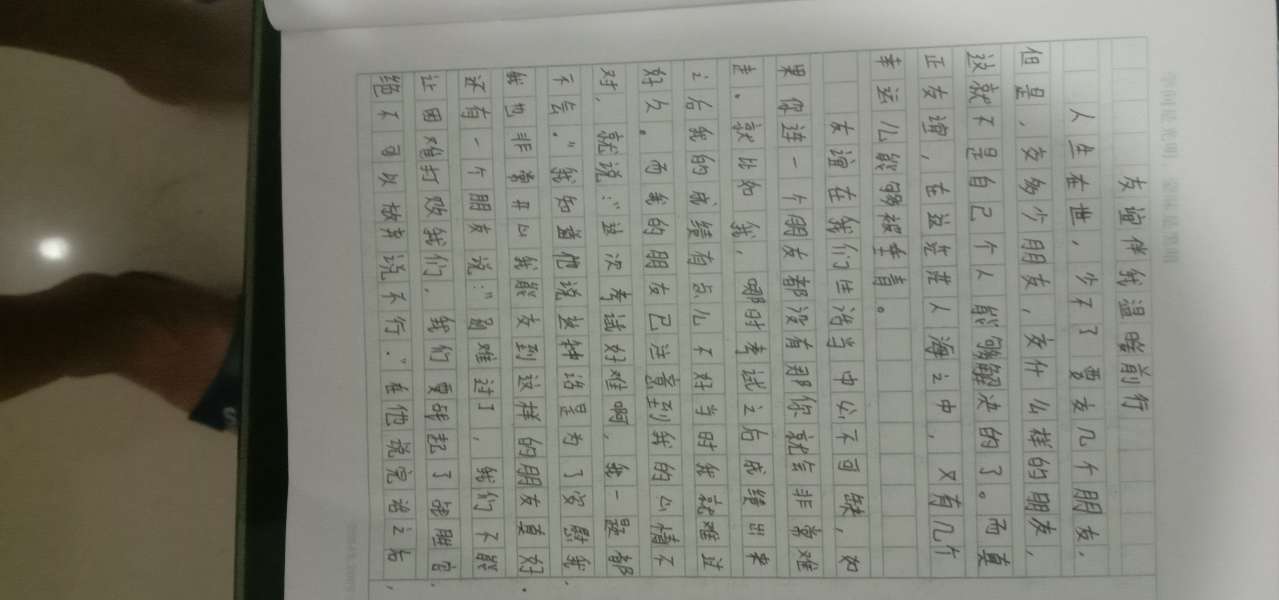 友谊伴我温暖前行
人生在世，少不了要交几个朋友.
但是，交多少朋友，交什么样的朋友，
这就不是自己个人能够解决的了。而真
正友谊，在这茫茫人海之中，又有几个
幸运儿能够被垂青。
友谊在我们生活当中必不可缺，如
果你连一个朋友都没有那你就会非常难
走。就比如我，哪时考试之后成绩出来
之后我的成绩有点儿不好当时我就难过
好久。而我的朋友已注意到我的心情不
对，就说：“这次考试好难啊，我一题都
不会。”我知道他说这种话是为了安慰我.
我也非常开心我能交到这样的朋友真好.
还有一个朋友说：“别难过了，我们不能
让困难打败我们，我们要
绝不可以放弃说不行.”在他说完话之后，